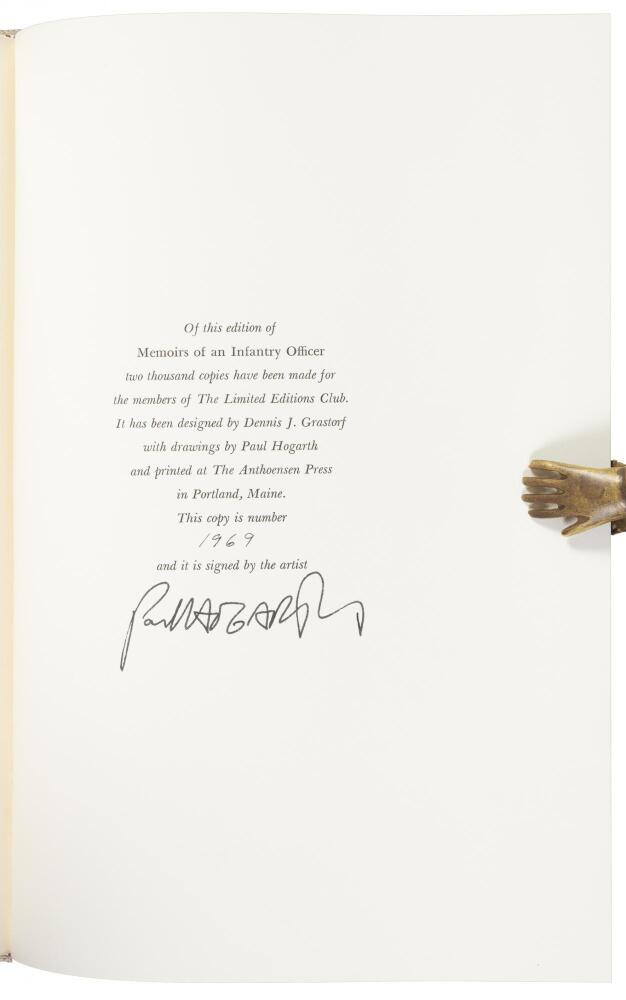 Of this edition of
Memoirs of an Infantry Officer
two thousand copies have been made for
the members of The Limited Editions Club.
It has been designed by Dennis J. Grastorf
with drawings by Paul Hogarth
and printed at The Anthoensen Press
in Portland, Maine.
This copy is number
1969
and it is signed by the artist
Paul HOGARTH